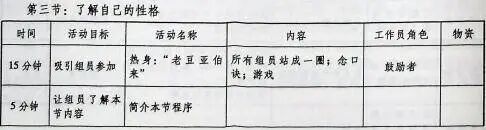 第三节：了解自己的性格
时间 活动目标 活动名称 内容 工作员角色 物资
15分钟 吸引组员参加 热身：“老豆亚伯来” 所有组员站成一圈；念口诀；游戏 鼓励者
5分钟 让组员了解本节内容 简介本节程序